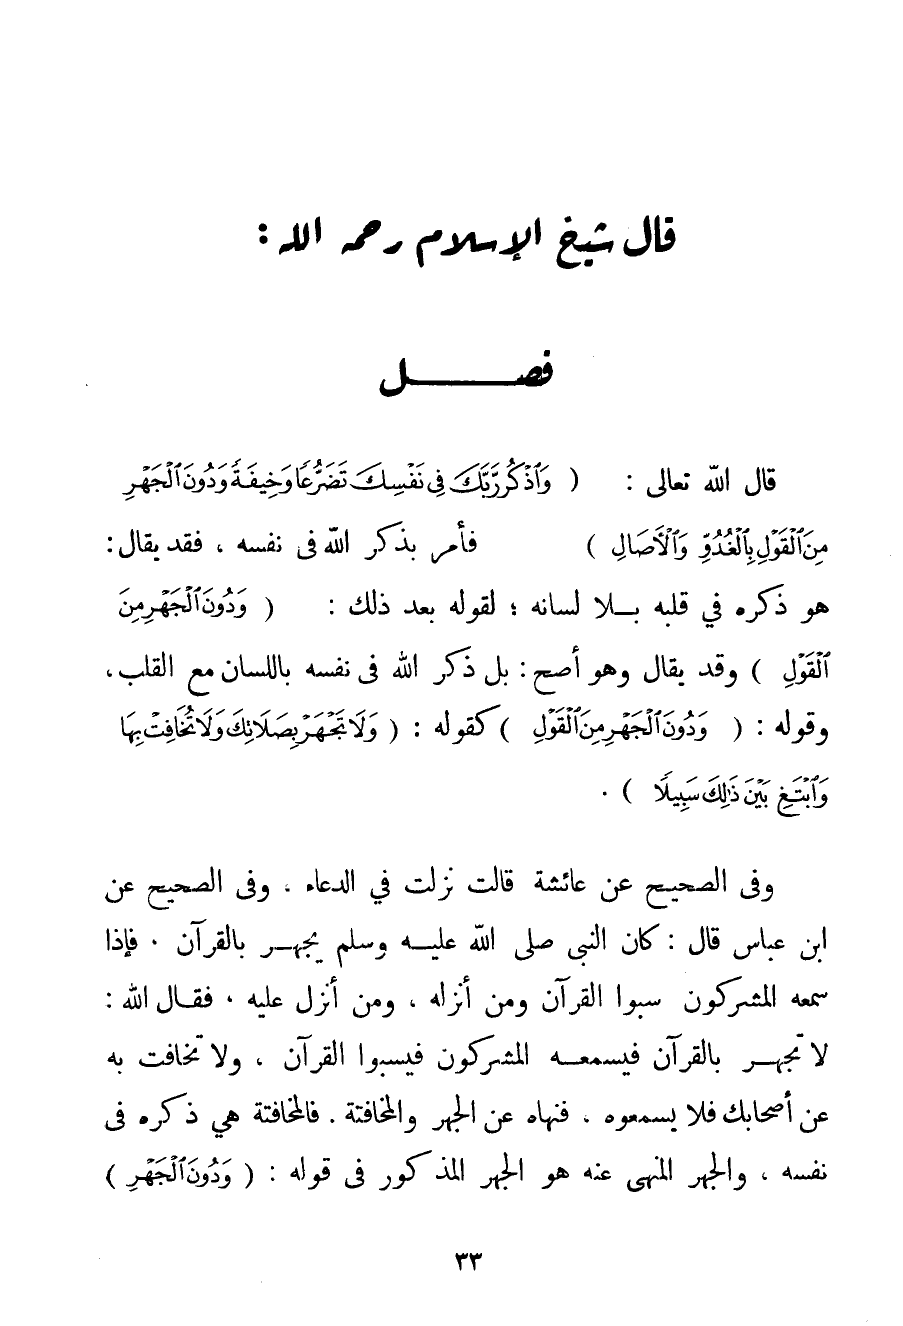 قال شيخ الإسلام رحمه الله :
فصــــــل
قال الله تعالى : ( وَٱذْكُر رَّبَّكَ فِى نَفْسِكَ تَضَرُّعًا وَخِيفَةً وَدُونَ ٱلْجَهْرِ
مِنَ ٱلْقَوْلِ بِٱلْغُدُوِّ وَٱلْأَصَالِ ) فأمر بذكر الله فى نفسه ، فقد يقال :
هو ذكره في قلبه بــلا لسانه ؛ لقوله بعد ذلك : ( وَدُونَ ٱلْجَهْرِ مِنَ
ٱلْقَوْلِ ) وقد يقال وهو أصح : بل ذكر الله فى نفسه باللسان مع القلب ،
وقوله : ( وَدُونَ ٱلْجَهْرِ مِنَ ٱلْقَوْلِ ) كقوله : ( وَلَا تَجْهَرْ بِصَلَاتِكَ وَلَا تُخَافِتْ بِهَا
وَٱبْتَغِ بَيْنَ ذَٰلِكَ سَبِيلًا ) .
وفى الصحيح عن عائشة قالت نزلت في الدعاء ، وفى الصحيح عن
ابن عباس قال : كان النبى صلى الله عليــه وسلم يجهــر بالقرآن . فإذا
سمعه المشركون سبوا القرآن ومن أنزله ، ومن أنزل عليه . فقــال الله :
لا تجهــر بالقرآن فيسمعــه المشركون فيسبوا القرآن ، ولا تخافت به
عن أصحابك فلا يسمعوه ، فنهاه عن الجهر والمخافتة . فالمخافتة هي ذكره فى
نفسه ، والجهر المنهى عنه هو الجهر المذكور فى قوله : ( وَدُونَ ٱلْجَهْرِ )
٣٣